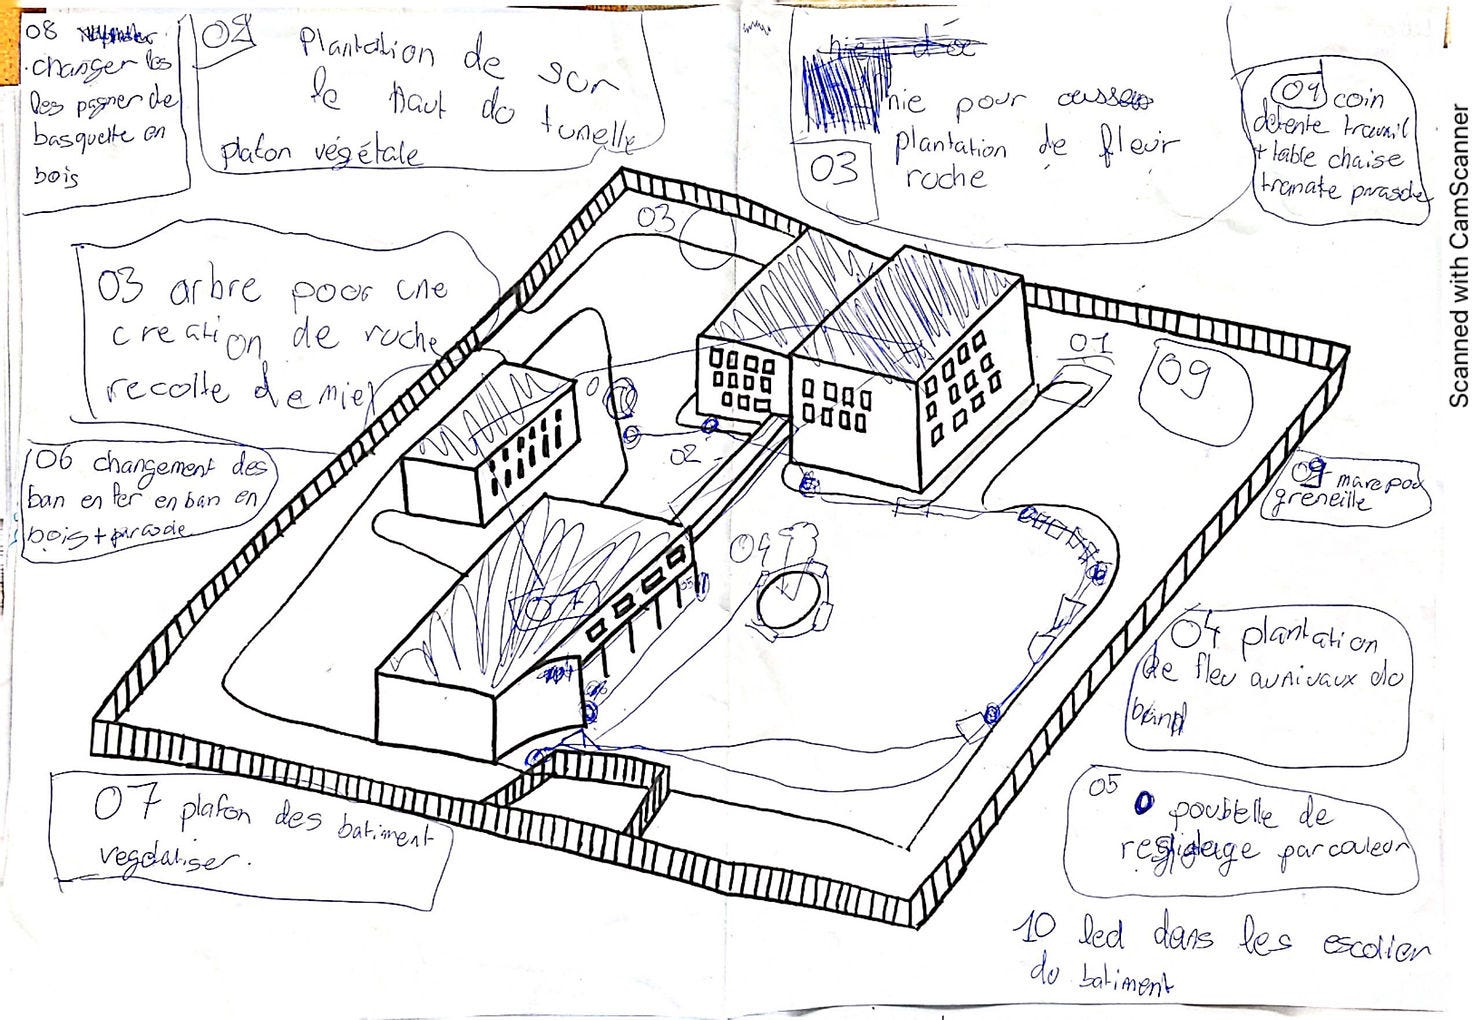 08
changer les
les pagner de
basquette en
bois
02
Plantation de sur
le haut do tunelle
platon végétale
nie pour
plantation de fleur
ruche
03
01 coin
détente travail
+ table chaise
03 arbre poor une
creation de ruche
recolte de miel
06 changement des
ban en fer en ban en
bois +
03
01
09
02
04
09 mare pou
greneille
04 plantation
de fleu aunivaux do
07 plafon des batiment
05
poubelle de
par couleur
10 led dans les escalier
do batiment
Scanned with CamScanner